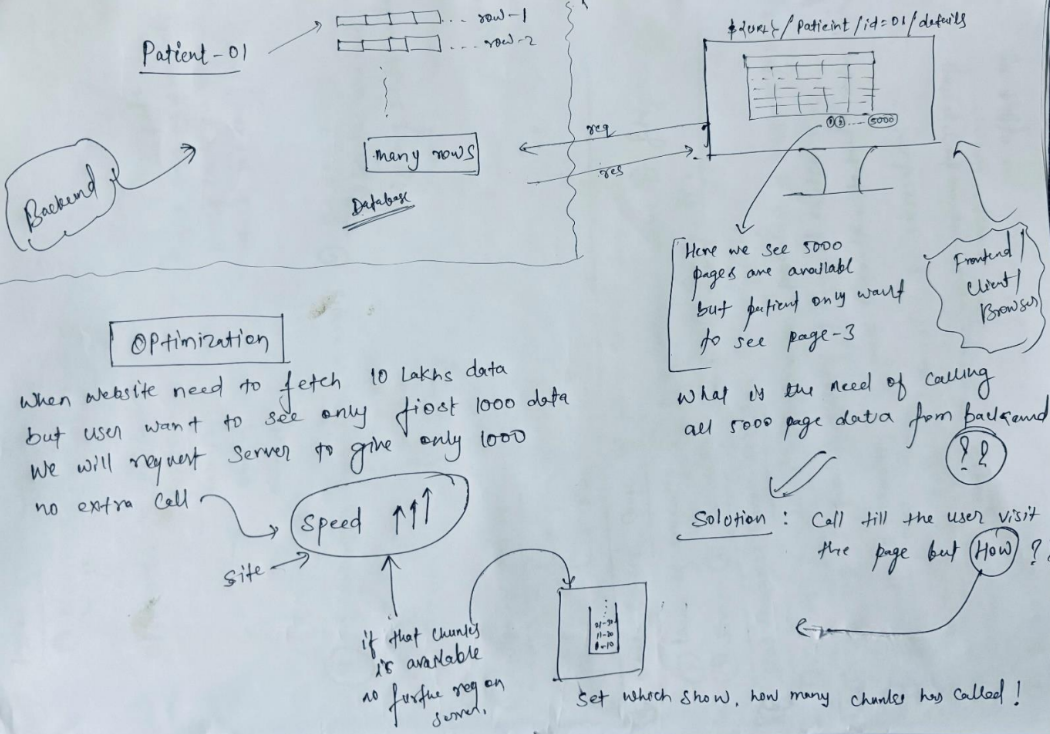 Patient-01
... row-1
... row-2
many rows
Database
Backend
req
res
${URL}/Patieint/id=01/details
5000
Here we see 5000
pages are availabl
but patient only want
to see page-3
Frontend/
Client/
Browser
What is the need of calling
all 5000 page data from backend
??
Solution : Call till the user visit
the page but How ?
Optimization
When website need to fetch 10 Lakhs data
but user want to see only first 1000 data
We will request server to give only 1000
no extra call
Speed ↑↑↑
Site
if that chunks
is available
no furthe req on
server.
21-30
11-20
0-10
Set which show, how many chunks has called!